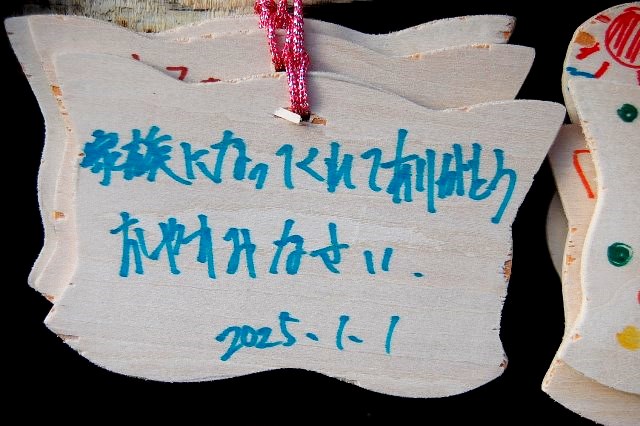 家族になってくれてありがとう
おやすみなさい.
2025.1.1